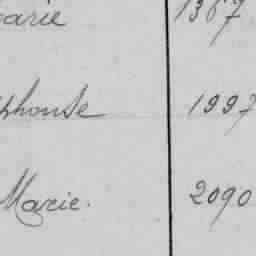 arie 1367
phonse 1997
Marie. 2090